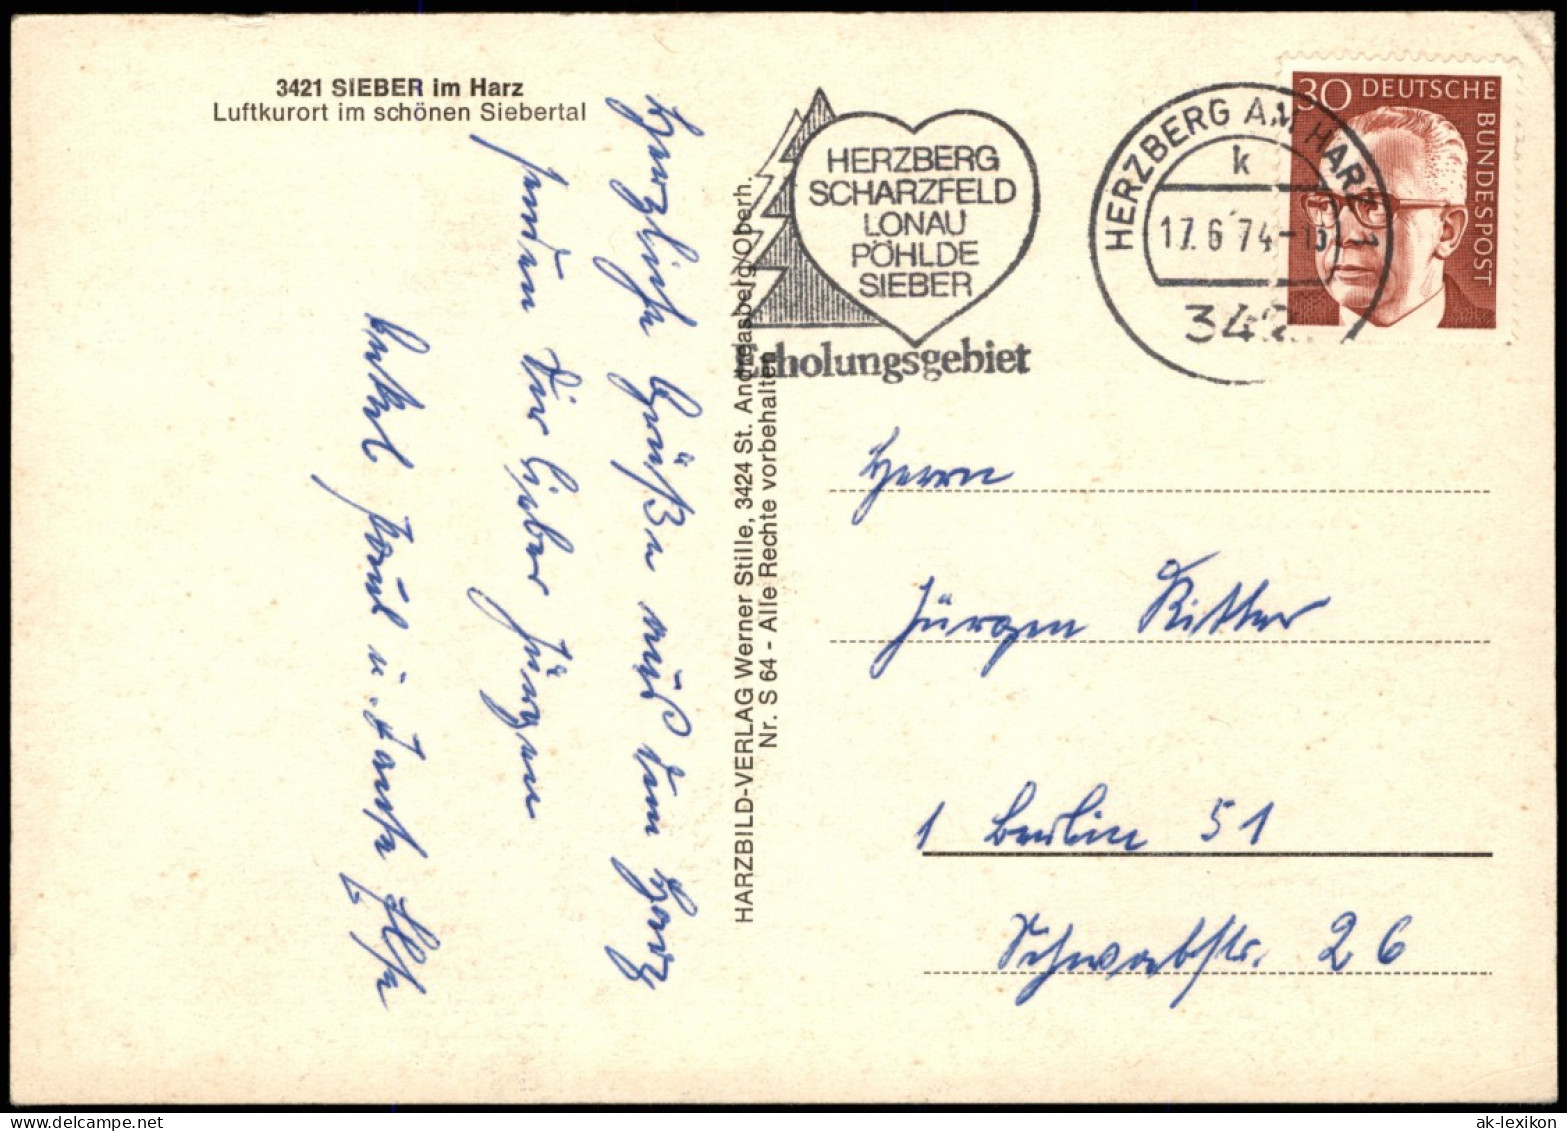 3421 SIEBER im Harz
Luftkurort im schönen Siebertal
Herzliche Grüße aus dem Harz
senden Dir lieber Jürgen
Onkel Paul u. Tante Ilse
HARZBILD-VERLAG Werner Stille, 3424 St. Andreasberg/Oberh.
Nr. S 64 - Alle Rechte vorbehalten
HERZBERG
SCHARZFELD
LONAU
PÖHLDE
SIEBER
Erholungsgebiet
HERZBERG AM HARZ 1
k
17.6.74-
342
30 DEUTSCHE
BUNDESPOST
Herrn
Jürgen Ritter
1 Berlin 51
Schwabstr. 26
ak-lexikon